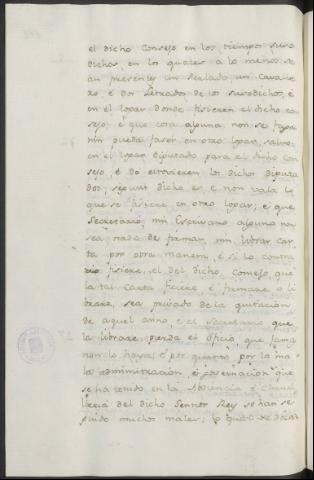 el dicho Consejo en los tiempos suso
dichos, en los quales a lo menos se
an presentes un Perlado, un Cavalle
ro, e dos Letrados de los susodichos, e
en el logar donde ficieren el dicho con
sejo, e que cosa alguna non se faga
nin pueda faser en otro logar, salvo
en el logar diputado para el dicho Con
sejo, e do estovieren los dichos diputa
dos, segunt dicho es, e non vala lo
que se ficiere en otro logar, e que
Secretario, nin Escrivano alguno non
sea osado de firmar, nin librar car
ta por otra manera, e si lo contra
rio ficiere, el del dicho Consejo, que
la tal carta ficiere, e firmare o li
brare, sea privado de la quitacion
de aquel anno, e el Secretario que
la librare, pierda el oficio, que jamas
non lo haya; e por quanto por la ma
la administracion, e governacion que
se ha tenido en la Abdiencia e Chanci
lleria del dicho Sennor Rey se han se
guido muchos males; lo qual